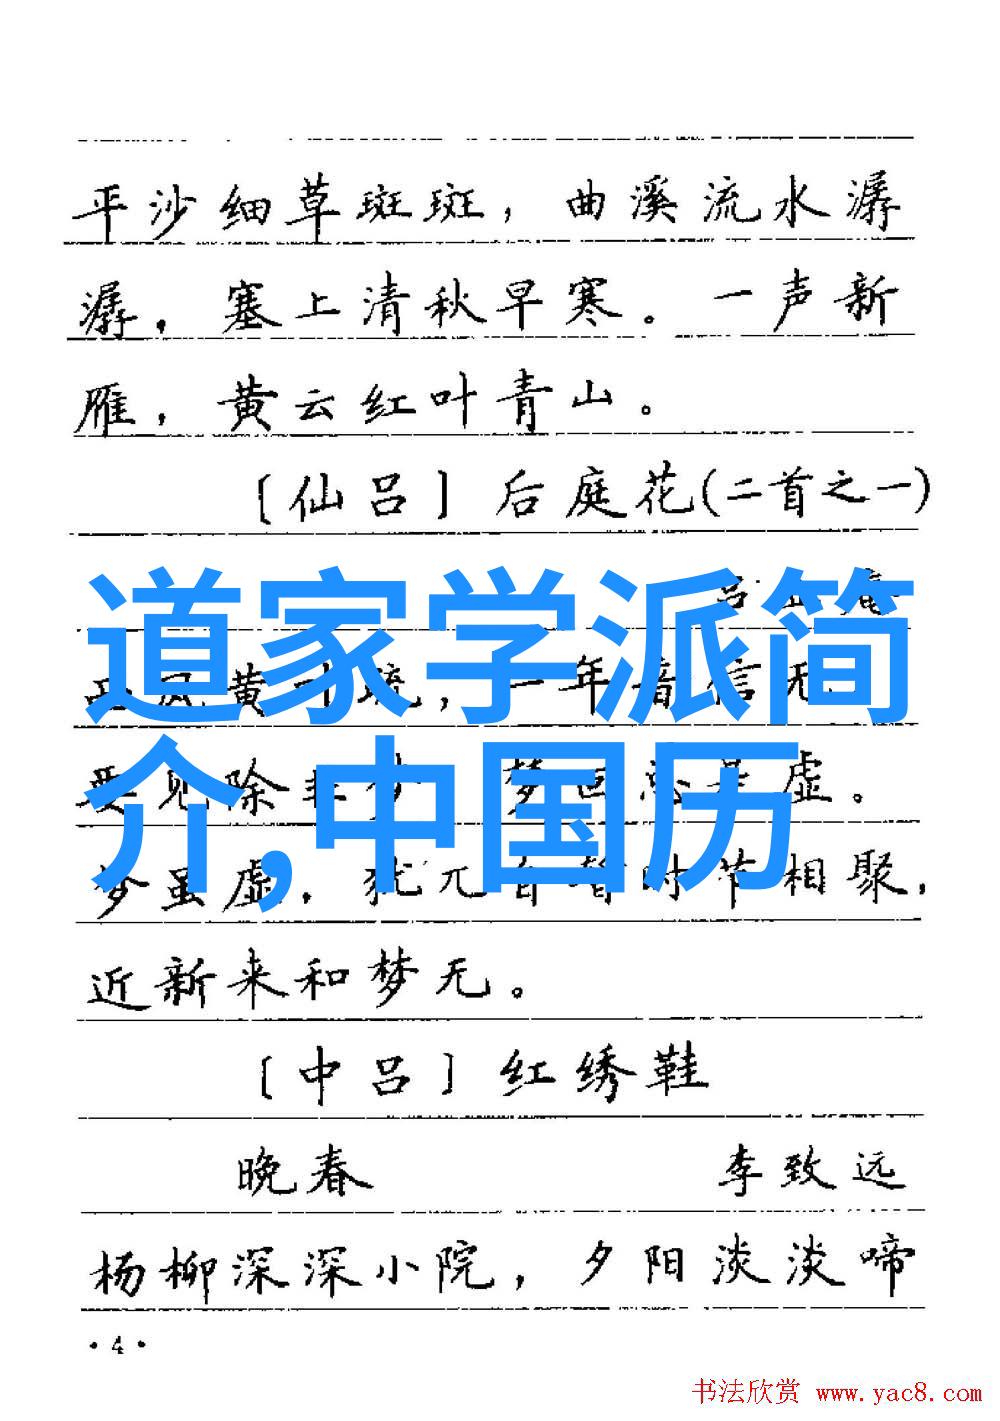 平沙细草斑斑，曲溪流水潺
潺，塞上清秋早寒。一声新
雁，黄云红叶青山。
〔仙吕〕后庭花(二首之一)
道家学派简
介,中国历
黄 一年音信无
要见除非梦 梦回总是虚。
梦虽虚，犹兀自暂时节相聚，
近新来和梦无。
〔中吕〕红绣鞋
晚春 李致远
杨柳深深小院，夕阳淡淡啼
·4·
书法欣赏 www.yac8.com